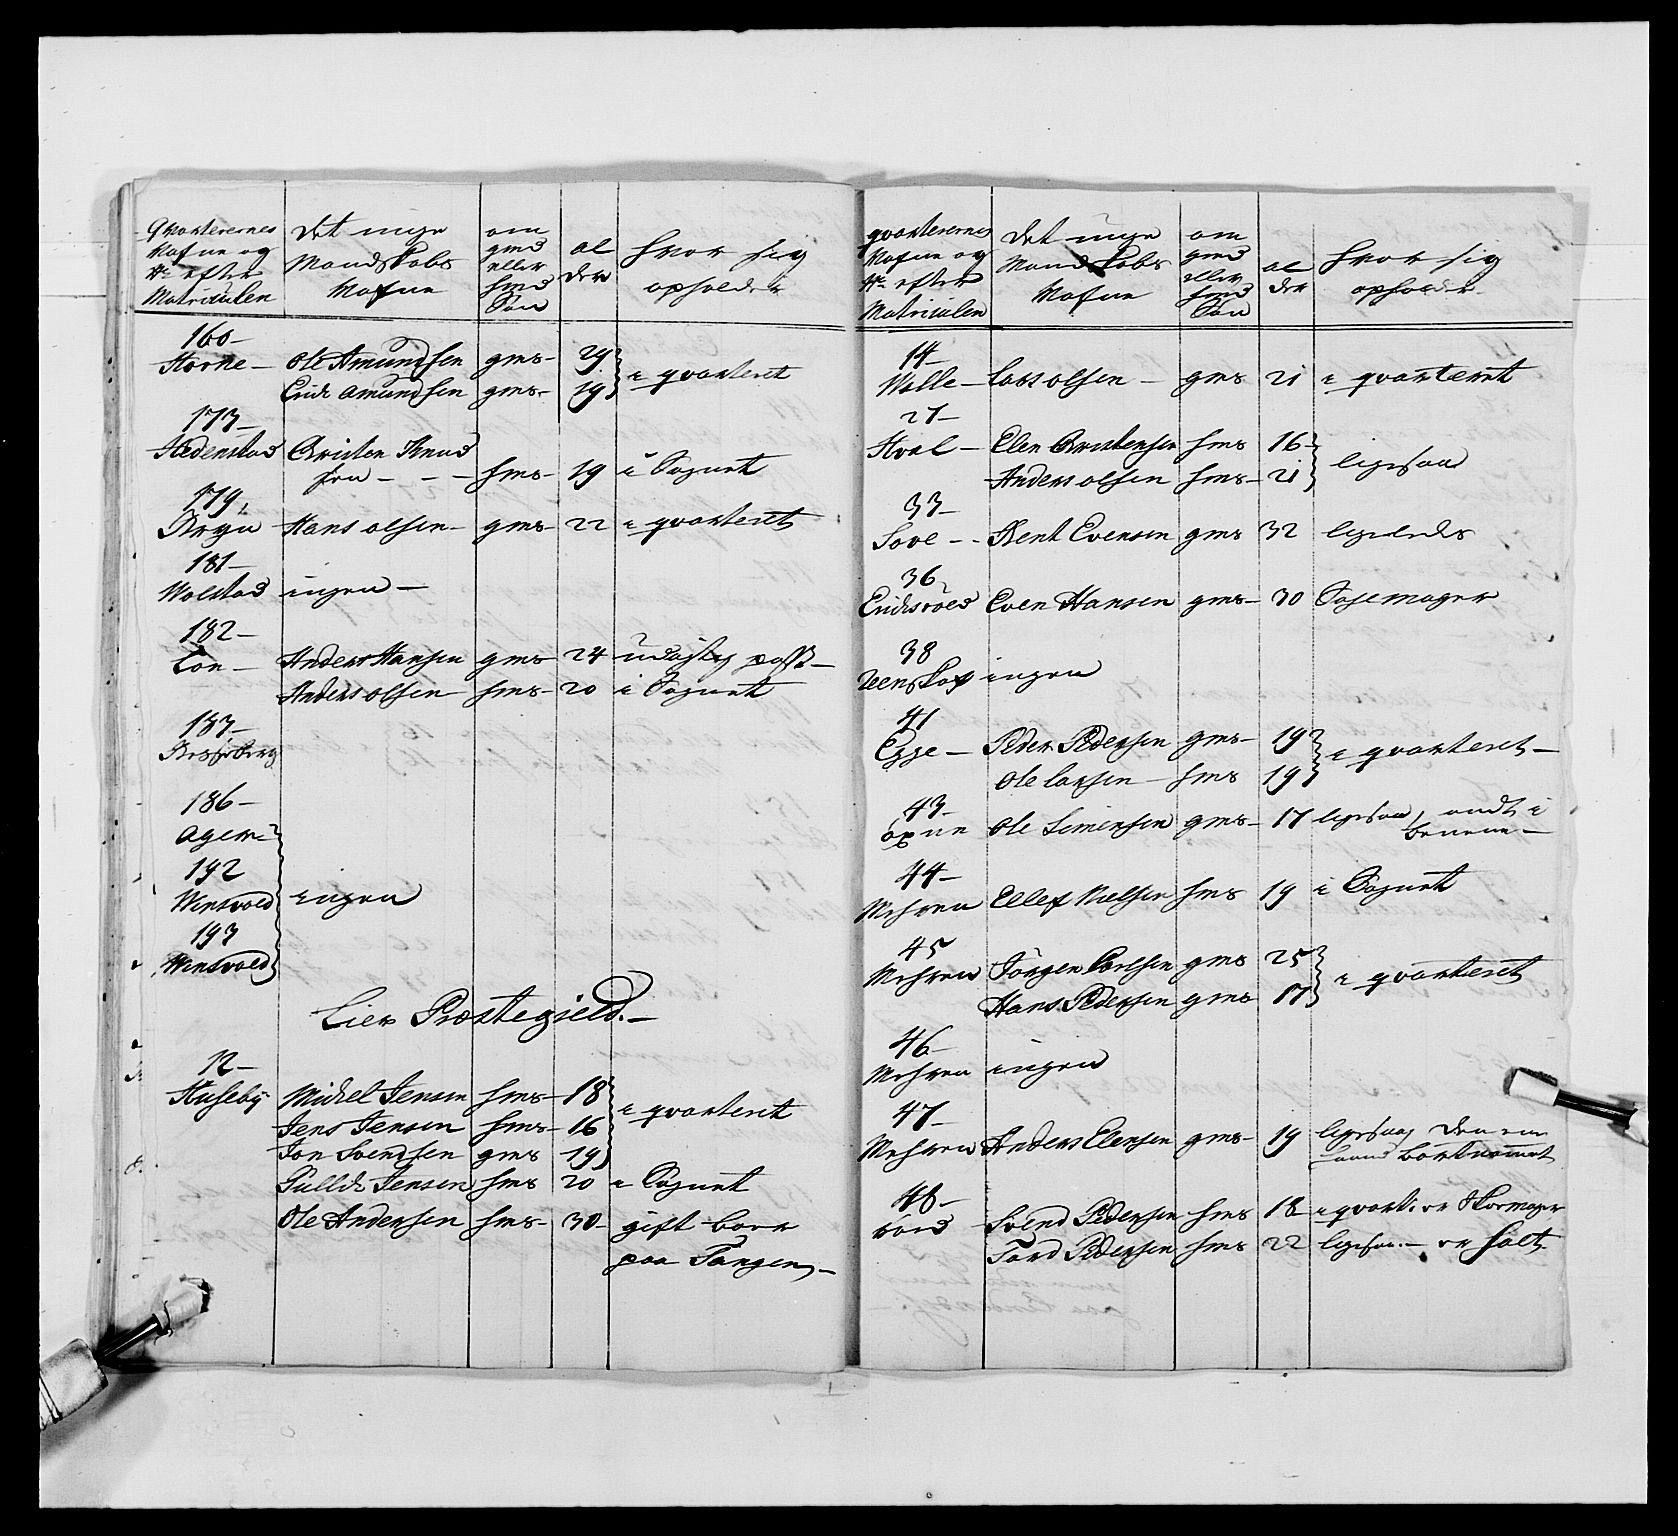 Qvarterernes Nafne og No efter Matriculen | Det unge Mandskabs Nafne | om gmd eller hmd Søn | alder | hvor sig opholder
160-
Horne - Ole Amundsen gms- 29 i qvarteret
Erich Amundsen gms- 19
173-
Hedenstad Christen Knud
sen - - - hms- 19 i Sognet
179,
Bryn Hans olsen- gms- 22 i qvarteret
181-
Wolstad ingen -
182-
Løn - Anders Hansen gms- 24
Anders olsen hms- 20 i Sognet
183-
186-
Ager-
192
Winsvold ingen
193
Winsvold
Lier Præstegield.-
12-
Huseby Michel Jensen hms- 18 i qvarteret
Jens Jensen hms- 16
Jon Svendsen gms 19
Gulick Jensen hms 20 i Sognet
Ole Andersen hms- 30- gift boer
paa Tangen,-
qvarterernes Nafne og No efter Matriculen | Det unge Mandskabs Nafne | om gmd eller hmd Søn | alder | hvor sig opholder
14-
Walle- Lars olsen - gms 21 i qvarteret
27-
Hval - Elen Christensen hms 16- ligesaa
Anders olsen hms- 21
33-
Sove - - Bent Evensen gms 32 ligeledes
36,
Erichsröed Even Hansen gms- 30
38
Reenskoug ingen
41
Egge - Peder Pedersen gms- 19 i qvarteret-
Ole Larsen - hms 19
43-
Ole Simensen gms- 17 ligesaa, ondt i
benene-
44-
Mehren Ellef Nielsen hms 19 i Sognet
45
Mehren Jörgen Carlsen gms 25 i qvarteret
Hans Pedersen gms 17
46-
Mehren ingen
47-
Mehren Anders Elensen gms- 19 ligesaa, den ene
haand bortkommet
48-
Svend Pedersen hms 18 i qvart: er Skoemager
Tord Pedersen hms 22 ligesaa.- er halt